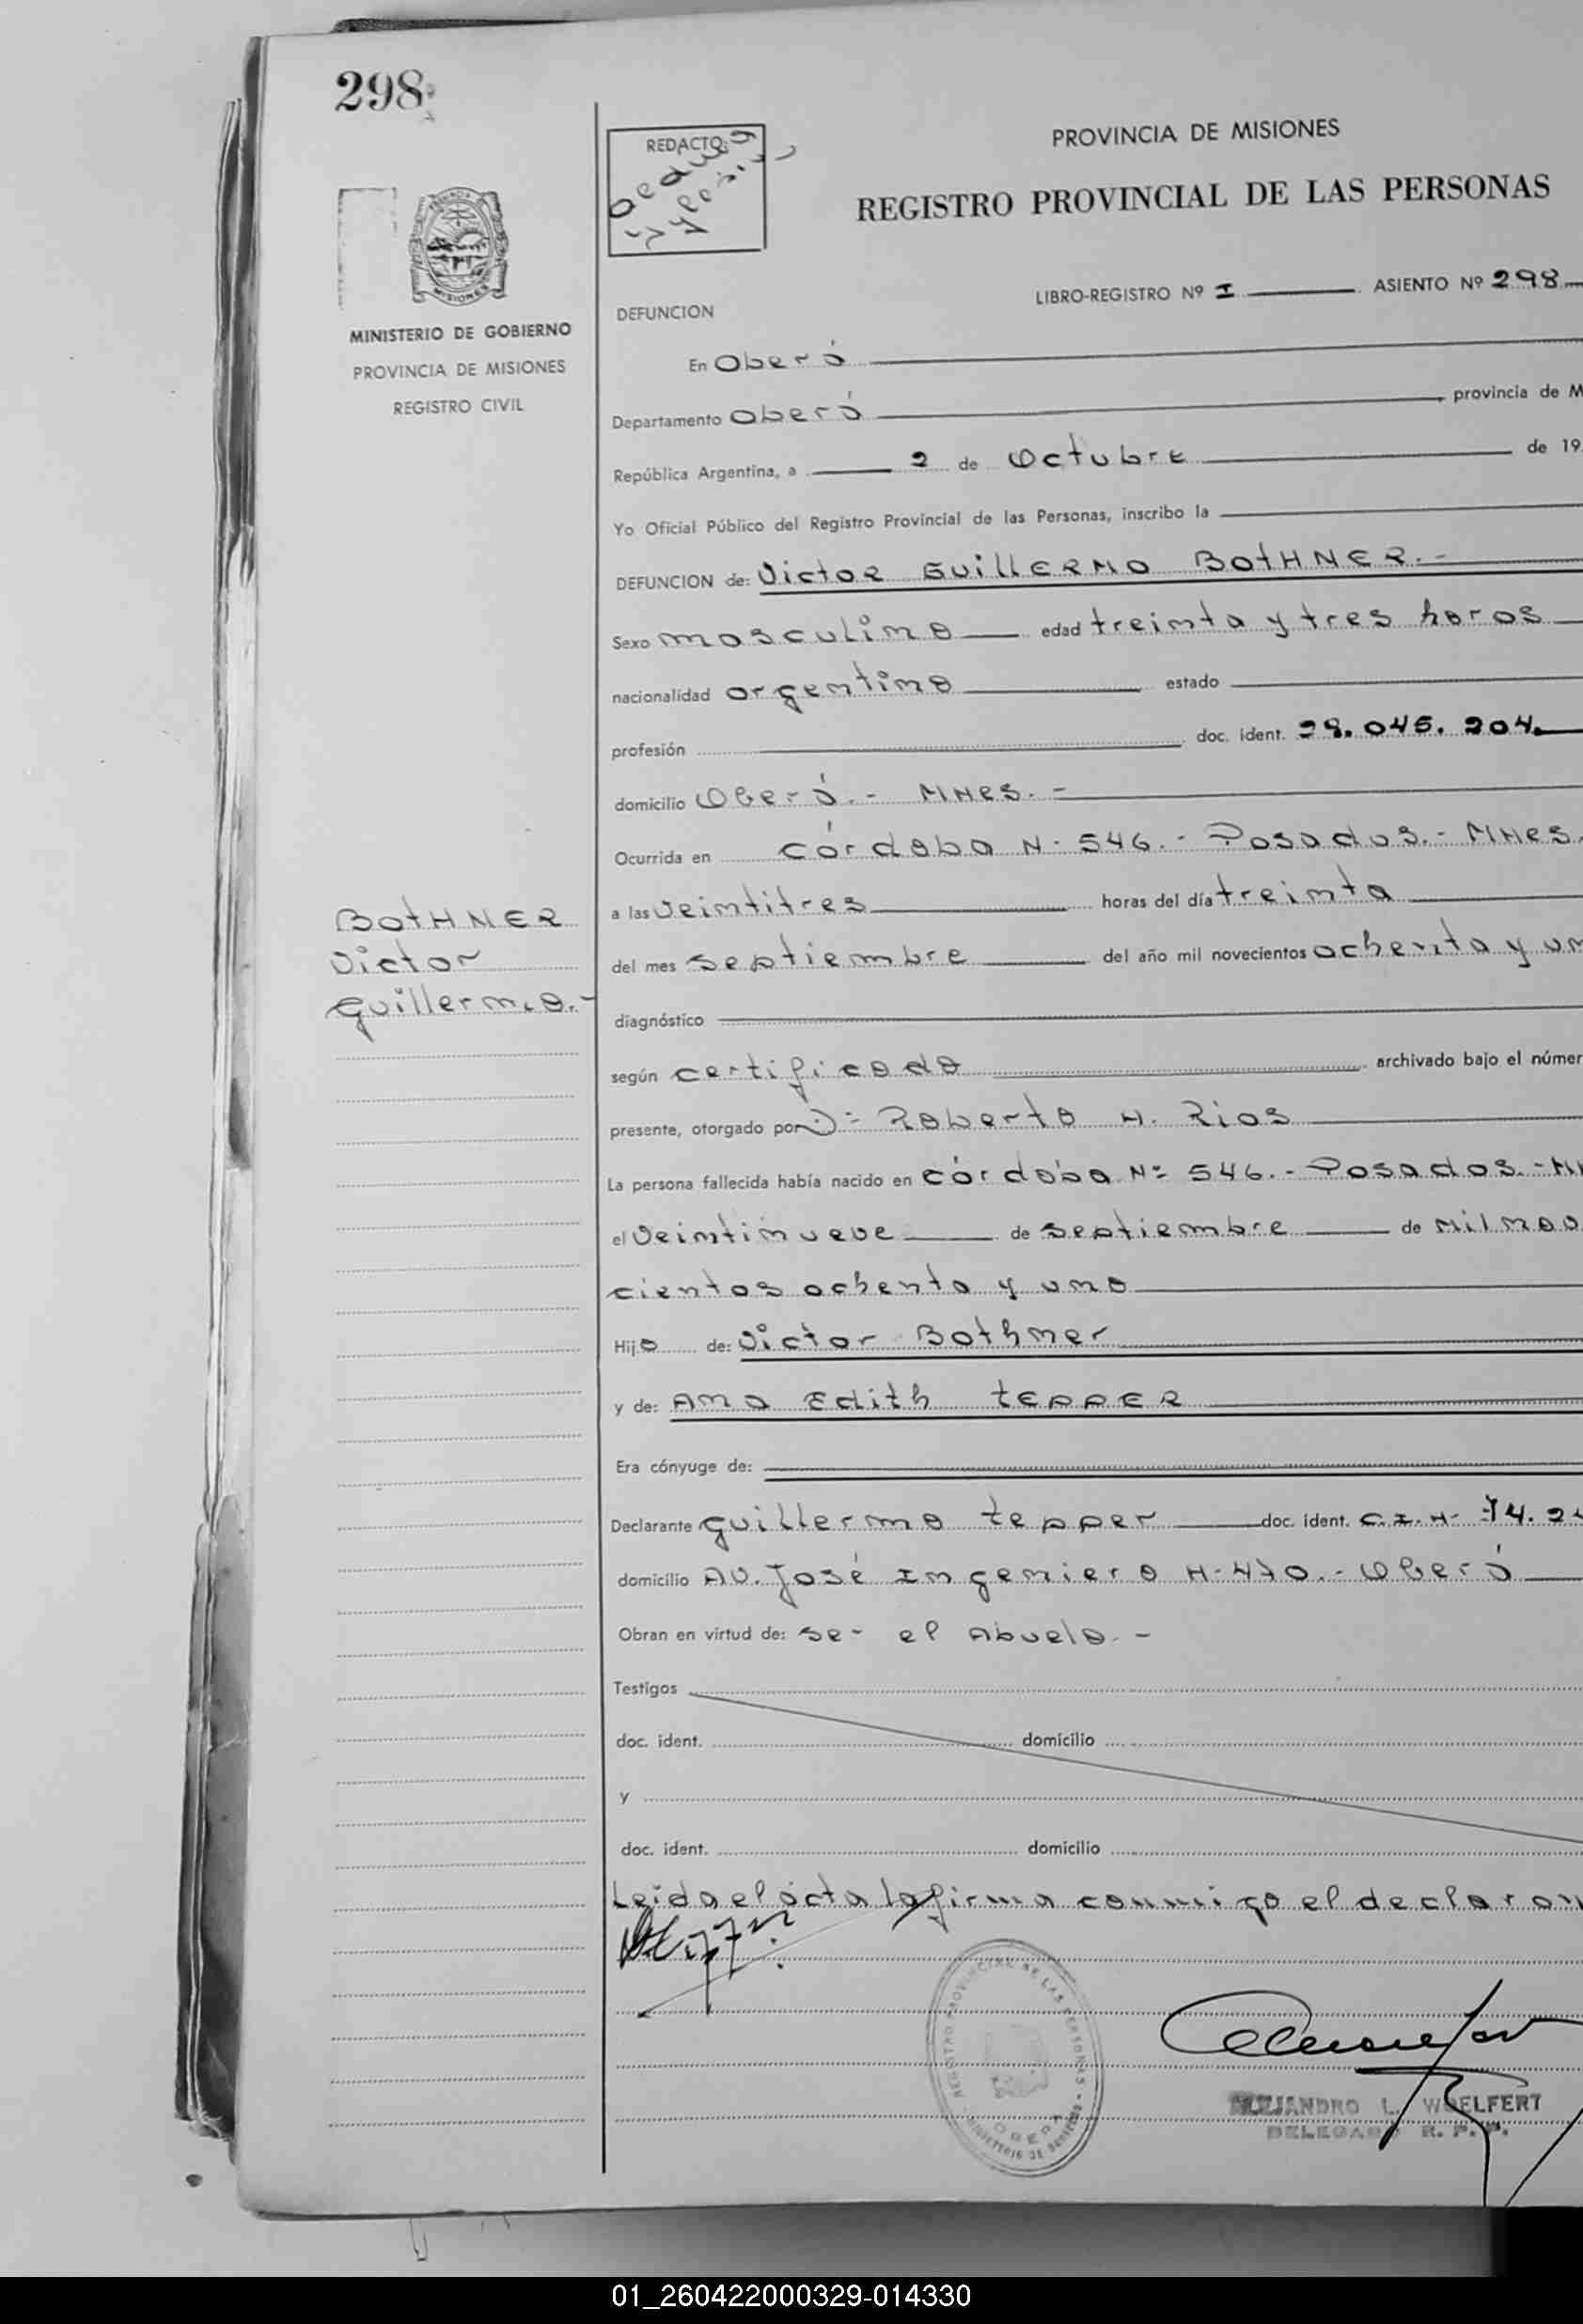 298
REDACTO:
PROVINCIA DE MISIONES
REGISTRO PROVINCIAL DE LAS PERSONAS
MISIONES
MINISTERIO DE GOBIERNO
PROVINCIA DE MISIONES
REGISTRO CIVIL
LIBRO-REGISTRO Nº I ASIENTO Nº 298
DEFUNCION
En Oberá
Departamento Oberá provincia de M
República Argentina, a 2 de Octubre de 19
Yo Oficial Público del Registro Provincial de las Personas, inscribo la
DEFUNCION de: Victor GuillERMO BOtHNER.-
Sexo masculino edad treinta y tres horas
nacionalidad argentino estado
profesión doc. ident. 28.045.204.
domicilio Oberá.- MNES.-
Ocurrida en Córdoba N- 546.- Posadas.- MNES.
BOtHNER
Victor
Guillermo.-
a las veintitres horas del día treinta
del mes septiembre del año mil novecientos ochenta y un
diagnóstico
según certificado archivado bajo el númer
presente, otorgado por D= Roberto H. Rios
La persona fallecida había nacido en Córdoba Nº 546.- Posadas.-
el veintinueve de septiembre de Mil nov
cientos ochenta y uno
Hijo de: Victor Bothner
y de: Ana Edith tEPPER
Era cónyuge de:
Declarante Guillermo tepper doc. ident. C.I.N- 74.2
domicilio AV. José Ingeniero N-470.- Oberá
Obran en virtud de: ser el Abuelo.-
Testigos
doc. ident. domicilio
y
doc. ident. domicilio
Leida el acta la firma conmigo el declaran
REGISTRO PROVINCIAL DE LAS PERSONAS
OBERA
MINISTERIO DE GOBIERNO
ALEJANDRO L. WOELFERT
DELEGADO R. P. P.
01_260422000329-014330